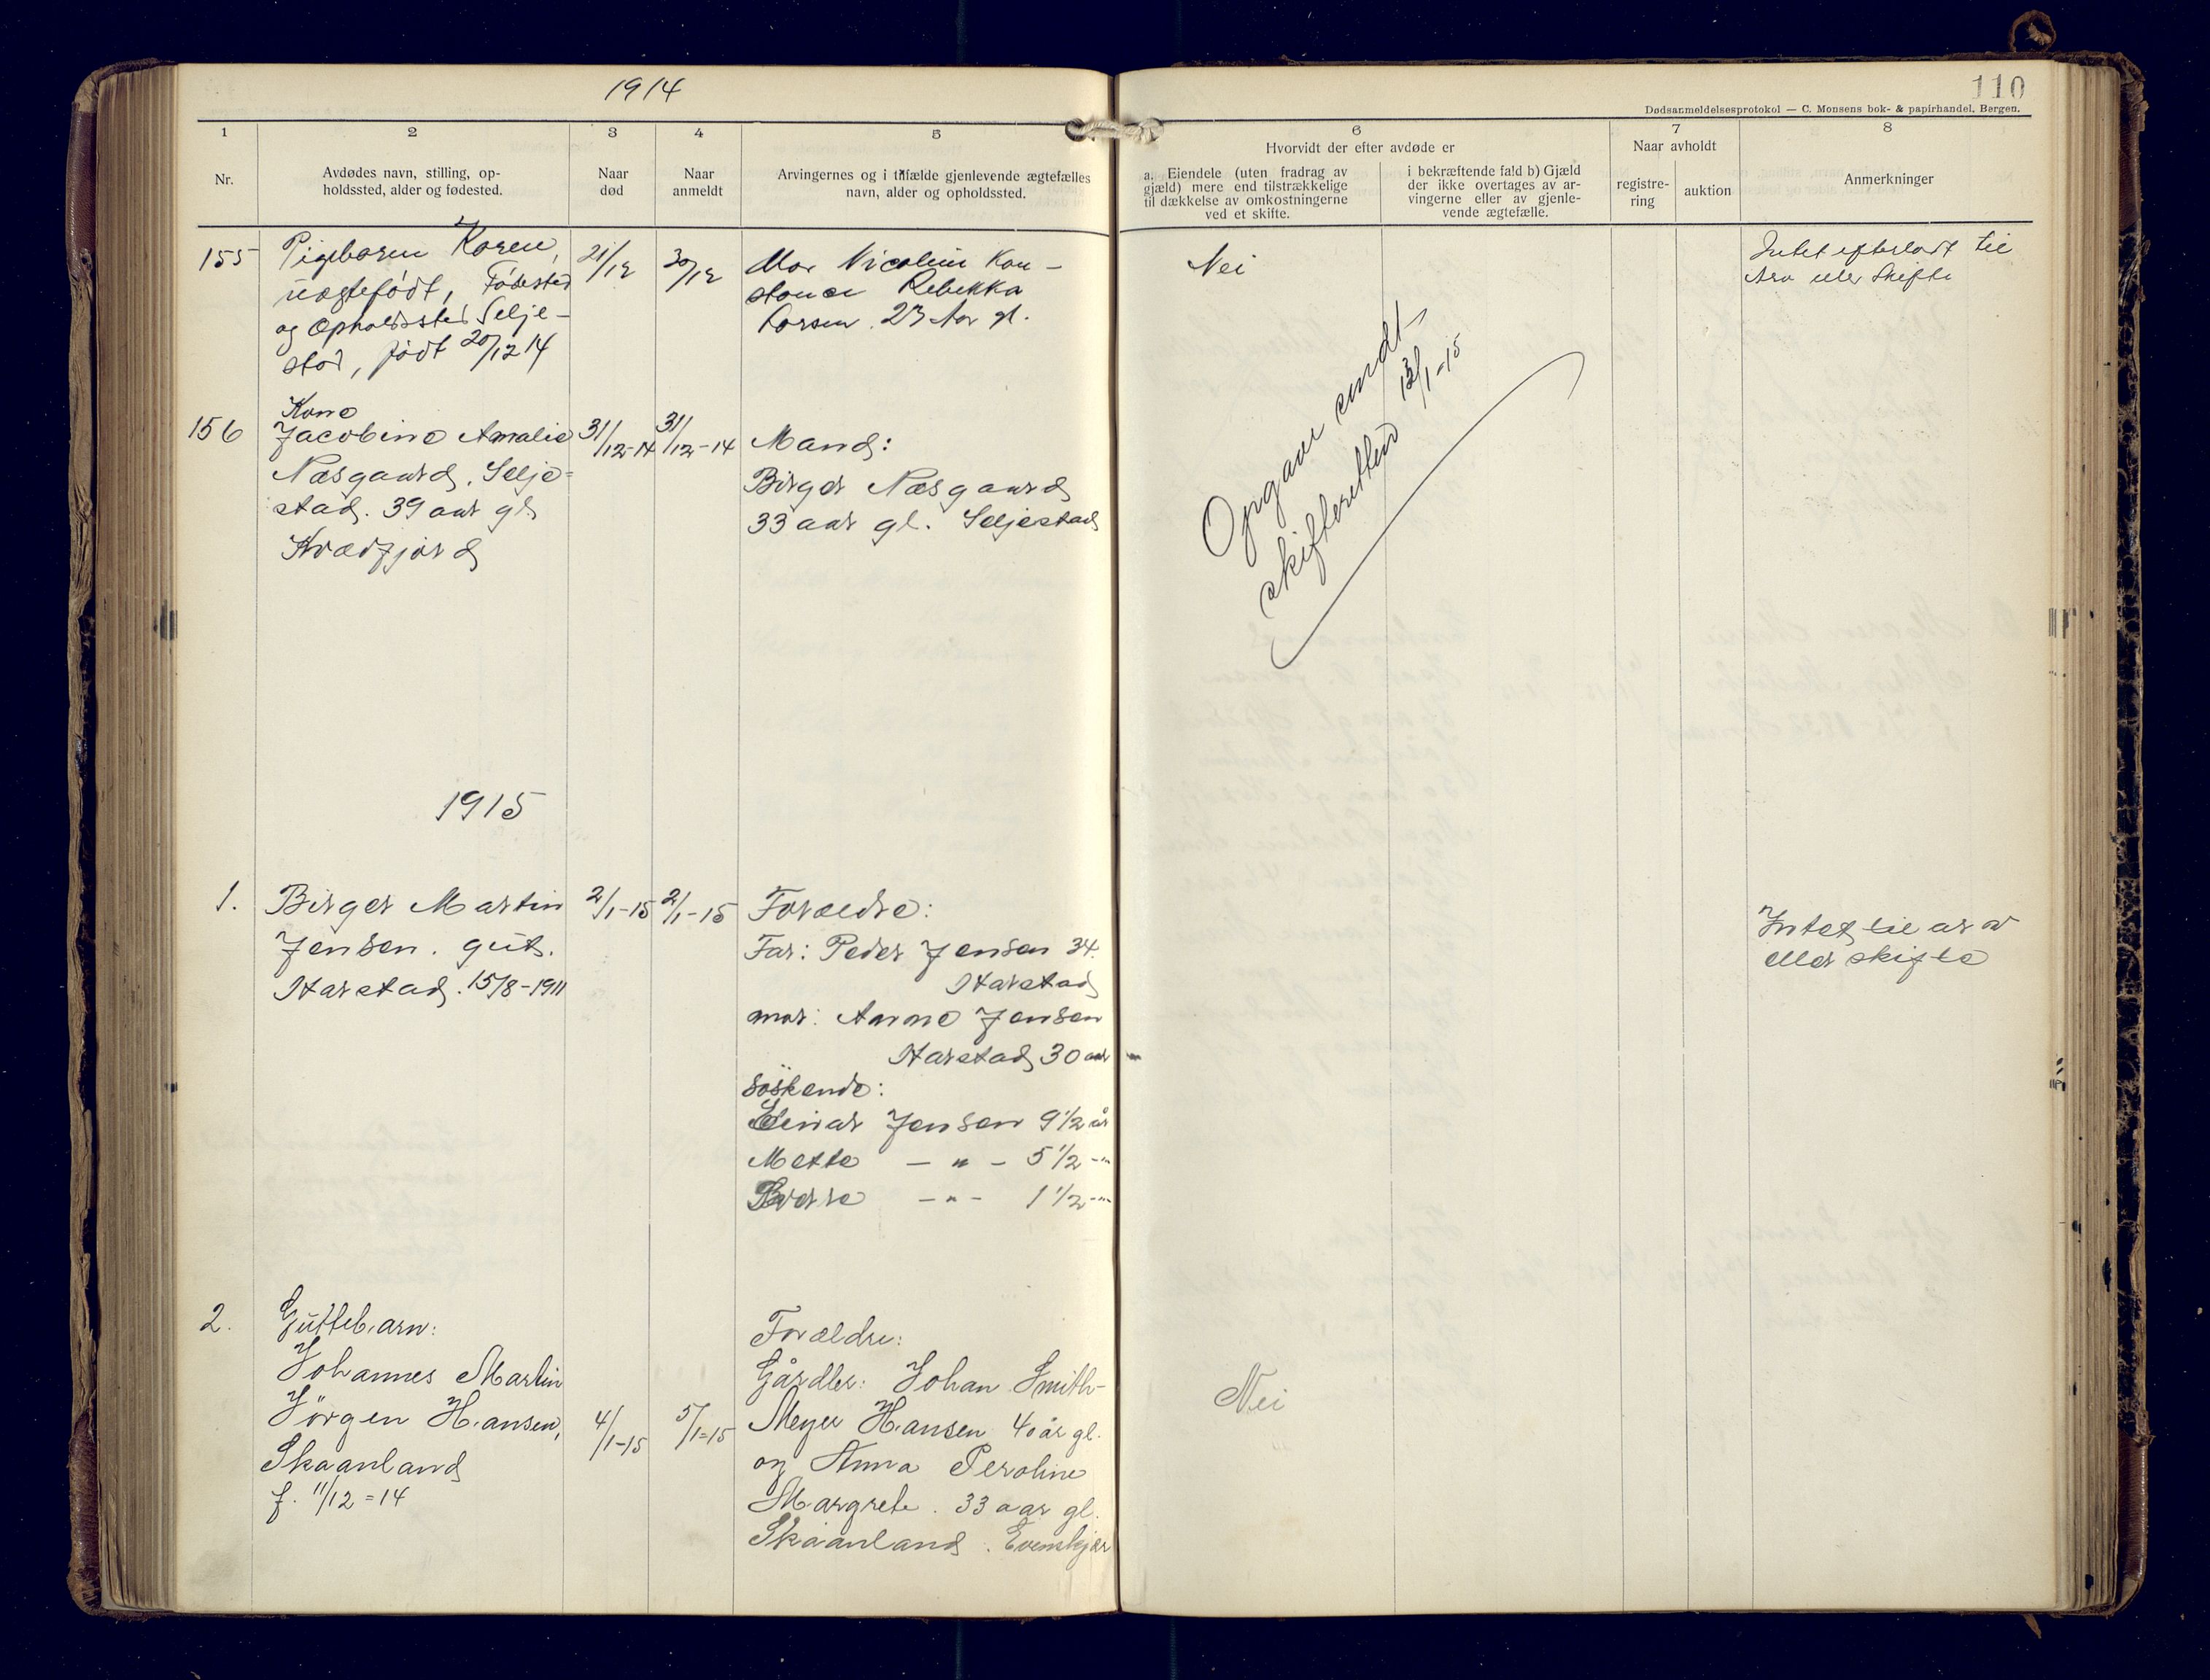 1914
110
Dødsanmeldelsesprotokol — C. Monsens bok- & papirhandel, Bergen.
1
2
3
4
5
6
7
8
Nr.
Avdødes navn, stilling, op-
holdssted, alder og fødested.
Naar
død
Naar
anmeldt
Arvingernes og i tilfælde gjenlevende ægtefælles
navn, alder og opholdssted.
Hvorvidt der efter avdøde er
a. Eiendele (uten fradrag av
gjæld) mere end tilstrækkelige
til dækkelse av omkostningerne
ved et skifte.
i bekræftende fald b) Gjæld
der ikke overtages av ar-
vingerne eller av gjenle-
vende ægtefælle.
Naar avholdt
registre-
ring
auktion
Anmerkninger
155
Pigebarn Karen,
uægtefødt, Fødested
og Opholdssted Selje-
stad, født 20/12 14
21/12
30/12
Mor Nicoline Kon-
stance Rebekka
Larsen. 23 Aar gl.
Nei
Intet efterladt til
Arv eller Skifte
156
Kone
Jacobine Amalie
Næsgaard. Selje=
stad. 39 aar gl.
Kvædfjord
31/12-14
31/12-14
Mand:
Birger Næsgaard
33 aar gl. Seljestad
Opgave sendt
skifteretten 13/1-15
1915
1.
Birger Martin
Jensen. gut.
Harstad. 15/8-1911
2/1-15
2/1-15
Forældre:
Far: Peder Jensen 34.
Harstad
mor: Anne Jensen
Harstad 30 aar
Søskende:
Einar Jensen 9 1/2 år
Mette — " — 5 1/2 -"-
Sverre — " — 1 1/2 -"-
Intet til arv
eller skifte
2.
Guttebarn:
Johannes Martin
Jörgen Hansen,
Skaanland
f. 11/12=14
4/1-15
5/1=15
Forældre:
Gårdbr: Johan Smith-
Meyer Hansen 40 år gl.
og Anna Peroline
Margrete. 33 aar gl.
Skaanland. Evenskjær
Nei